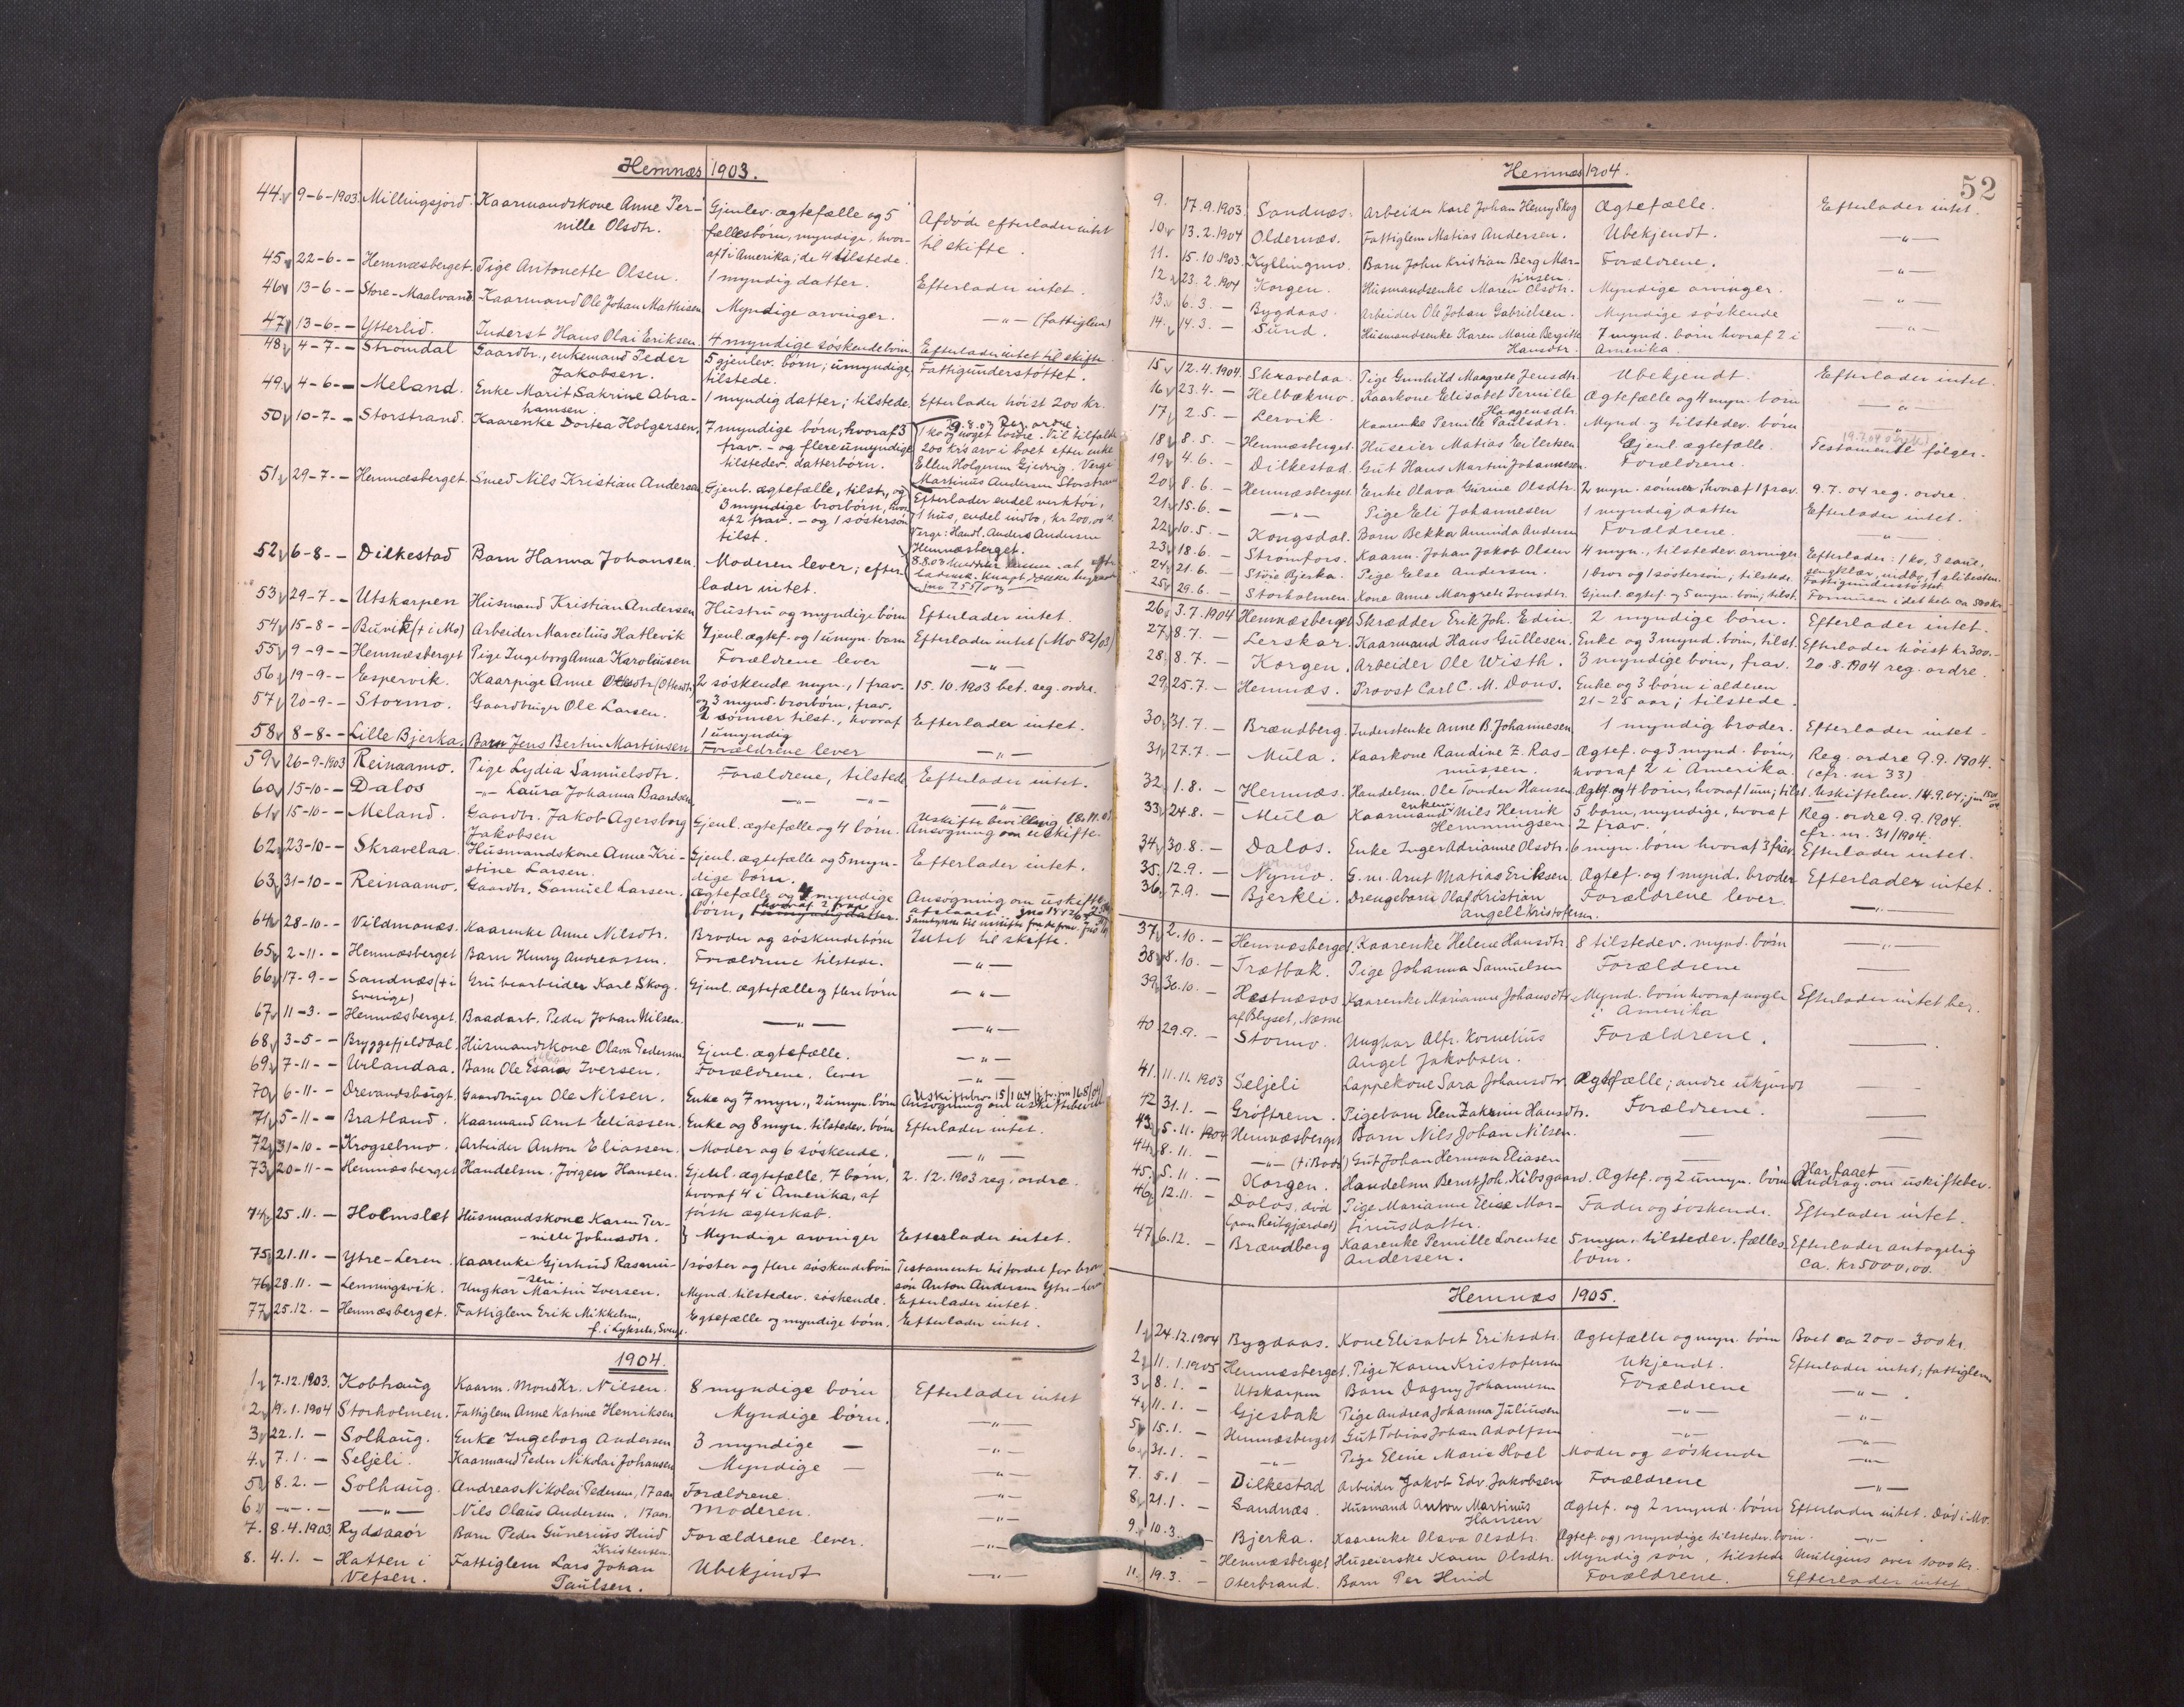 Hemnæs 1903.
44. 9-6-1903. Millingsjord. Kaarmandskone Anne Per- Gjenlev. ægtefælle og 5 Afdøde efterlader intet
nille Olsdtr. fællesbørn, myndige, hvor- til skifte.
af 1 i Amerika; de 4 tilstede.
45 22-6- - Hemnæsberget. Pige Antonette Olsen. 1 myndig datter. Efterlader intet.
46 13-6- - Store-Maalvand. Kaarmand Ole Johan Mathisen Myndige arvinger. —"— (fattiglem)
47 13-6- - Ytterlid. Inderst Hans Olai Eriksen. 4 myndige søskendebørn. Efterlader intet til skifte.
48 4-7- - Strømdal Gaardbr., enkemand Peder 5 gjenlev. børn; umyndige, Fattigunderstøttet.
Jakobsen. tilstede.
49 4-6- - Meland. Enke Marit Sakrine Abra- 1 myndig datter; tilstede. Efterlader høist 200 kr.
hamsen
50 10-7- - Storstrand. Kaarenke Dortea Holgersen. 7 myndige børn, hvoraf 3 Reg. ordre.
frav. - og flere umyndige 1 ko og noget løsøre. Vil tilfalde
tilstedev. datterbørn. 200 kr's arv i boet efter enke
Ellen Holgersen Gjedvig. Verge
Martinus Andersen Storstrand
51 29-7- - Hemnæsberget. Smed Nils Kristian Andersen Gjenl. ægtefælle, tilst., og Efterlader endel verktøi,
3 myndige brorbørn, hvor- 1 hus, endel indbo, kr 200,00.
af 2 frav. - og 1 søstersøn Verge: Handl. Anders Andersen
tilst. Hemnæsberget.
52 6-8- - Dilkestad Barn Hanna Johansen. Moderen lever; efter-
lader intet.
53 29-7- - Utskarpen Husmand Kristian Andersen Hustru og myndige børn Efterlader intet.
54 15-8- - Buvik (+ i Mo) Arbeider Marcelius Hatlevik Gjenl. ægtef. og 1 umyn. barn Efterlader intet (Mo 52/03)
55 9-9- - Hemnæsberget Pige Ingeborg Anna Karoliusen Forældrene lever —"—
56 19-9- - Espervik. Kaarpige Anne (Ottesdtr) 2 søskende myn., 1 frav. 15.10.1903 bet. reg. ordre.
og 3 mynd. brorbørn, frav.
57 20-9- - Stormo. Gaardbruger Ole Larsen. 2 sønner tilst., hvoraf Efterlader intet.
1 umyndig
58 8-8- - Lille Bjerka. Barn Jens Bertin Martinsen Forældrene lever —"—
59 26-9-1903 Reinaamo. Pige Lydia Samuelsdtr. Forældrene, tilstede Efterlader intet.
60 15-10- - Dalos —"— Laura Johanna Baardsen —"— —"— —"—
61 15-10- - Meland. Gaardbr. Jakob Agersborg Gjenl. ægtefælle og 4 børn. Uskiftebevilling
Jakobsen Ansøgning om uskifte.
62 23-10- - Skravelaa Husmandskone Anne Kri- Gjenl. ægtefælle og 5 myn- Efterlader intet.
stine Larsen. dige børn.
63 31-10- - Reinaamo. Gaardbr. Samuel Larsen. Ægtefælle og 4 myndige Ansøgning om uskifte
børn, hvoraf 2 frav.
64 28-10- - Vildmones. Kaarenke Anne Nilsdtr. Broder og søskendebørn Intet til skifte.
65 2-11- - Hemnæsberget Barn Henry Andreassen. Forældrene tilstede. —"—
66 17-9- - Sandnæs (+ i Grubearbeider Karl Skog. Gjenl. ægtefælle og flere børn —"—
Sverige)
67 11-3- - Hemnæsberget Baadarb. Peder Johan Nilsen. —"— —"—
68 3-5- - Bryggefjelddal. Husmandskone Olava Pedersen Gjenl. ægtefælle. —"—
69 7-11- - Urlandaa. Barn Ole Iversen. Forældrene lever —"—
70 6-11- - Drevandsbugt. Gaardbruger Ole Nilsen. Enke og 7 myn., 2 umyn. børn Ansøgning om uskiftebev.
71 5-11- - Bratland. Kaarmand Arnt Eliassen. Enke og 8 myn. tilstedev. børn Efterlader intet.
72 31-10- - Krogselvmo. Arbeider Anton Eliassen Moder og 6 søskende. —"—
73 20-11- - Hemnæsberget Handelsm. Jørgen Hansen. Gjenl. ægtefælle, 7 børn, 2.12.1903 reg. ordre.
hvoraf 4 i Amerika, af
første ægteskab.
74 25.11. - Holmslet Husmandskone Karen Per- } Myndige arvinger Efterlader intet.
nille Johnsdtr.
75 21.11. - Ytre-Leren. Kaarenke Gjertrud Rasmus- 1 søster og flere søskendebørn Testamente til fordel for bror-
sen. søn Anton Andersen Ytre-Leren
76 28.11. - Lenningsvik. Ungkar Martin Iversen. Mynd. tilstedev. søskende. Efterlader intet.
77 25.12. - Hemnæsberget. Fattiglem Erik Mikkelsen, Egtefælle og myndige børn. Efterlader intet.
f. i Lyksele, Sverige.
1904.
1. 7.12.1903. Kobhaug Kaarm. Mons Kr. Nilsen. 8 myndige børn Efterlader intet
2. 9.1.1904 Storholmen. Fattiglem Anne Katrine Henriksen Myndige børn. —"—
3. 22.1. - Solhaug. Enke Ingeborg Andersen 3 myndige — —"—
4. 7.1. - Seljeli. Kaarmand Peder Nikolai Johansen Myndige — —"—
5 8.2. - Solhaug. Andreas Nikolai Pedersen, 17 aar Forældrene. —"—
6 —"— —"— Nils Olaus Andersen, 17 aar. Moderen. —"—
7. 8.4.1903 Rydsaaør Barn Peder Gunerius Hvid Forældrene lever. —"—
Kristensen.
8. 4.1. - Hatten i Fattiglem Lars Johan Ubekjendt —"—
Vefsen. Paulsen.
52
Hemnæs 1904.
9. 17.9.1903. Sandnæs. Arbeider Karl Johan Henry Skog Ægtefælle. Efterlader intet.
10 13.2.1904 Oldernæs. Fattiglem Matias Andersen. Ubekjendt. —"—
11. 15.10.1903. Kyllingmo. Barn John Kristian Berg Mar- Forældrene. —"—
tinsen.
12 23.2.1904 Korgen. Husmandsenke Maren Olsdtr. Myndige arvinger. —"—
13. 6.3. - Bygdaas. Arbeider Ole Johan Gabrielsen. Myndige søskende —"—
14. 14.3. - Sund. Husmandsenke Karen Marie Bergitte 7 mynd. børn hvoraf 2 i —"—
Hansdtr. Amerika.
15 12.4.1904. Skravelaa. Pige Gunhild Margrete Jensdtr. Ubekjendt. Efterlader intet.
16 23.4. - Helbækmo. Kaarkone Elisabet Pernille Ægtefælle og 4 myn. børn —"—
Haagensdtr.
17 2.5. - Lervik. Kaarenke Pernille Paulsdtr. Mynd. og tilstedev. børn —"—
18 8.5. - Hemnæsberget. Huseier Matias Eilertsen Gjenl. ægtefælle. Testamente følger.
19 4.6. - Dilkestad. Gut Hans Martin Johannesen. Forældrene.
20 8.6. - Hemnæsberget. Enke Olava Gurine Olsdtr. 2 myn. sønner, hvoraf 1 frav. 9.7.04 reg. ordre.
21 15.6. - —"— Pige Eli Johannesen 1 myndig datter Efterlader intet.
22 10.5. - Kongsdal. Barn Bekka Aminda Andersen Forældrene. —"—
23 18.6. - Strømfors. Kaarm. Johan Jakob Olsen 4 myn., tilstedev. arvinger. Efterlader: 1 ko, 3 sauer,
sengklær, indbo, 1 slibesten.
24 21.6. - Store Bjerka. Pige Else Andersen. 1 bror og 1 søstersøn; tilstede. Fattigunderstøttet
25 29.6. - Storholmen. Kone Anne Margrete Ivensdtr. Gjenl. ægtef. og 5 myn. børn; tilst. Formuen i det hele ca 500 kr.
26 3.7.1904 Hemnæsberget Skrædder Erik Joh. Edin. 2 myndige børn. Efterlader intet.
27 8.7. - Lerskar. Kaarmand Hans Gullesen. Enke og 3 mynd. børn, tilst. Efterlader høist kr 300.-
28 8.7. - Korgen. Arbeider Ole Wisth. 3 myndige børn, frav. 20.8.1904 reg. ordre.
29 25.7. - Hemnæs. Provst Carl C. M. Dons. Enke og 3 børn i alderen
21-25 aar; tilstede.
30 31.7. - Brændberg. Inderstenke Anne B. Johannesen 1 myndig broder. Efterlader intet.
31 27.7. - Mula. Kaarkone Randine Z. Ras- Ægtef. og 3 mynd. børn, Reg. ordre 9.9.1904.
mussen. hvoraf 2 i Amerika. (cfr. nr 33)
32 1.8. - Hemnæs. Handelsm. Ole Tønder Hansen Ægtef. og 4 børn, hvoraf 1 um; tilst. Uskiftebev. 14.9.04;
33 24.8. - Mula Kaarmand enkem. Nils Henrik 5 børn, myndige, hvoraf Reg. ordre 9.9.1904.
Hemmingsen 2 frav. cfr. nr. 31/1904.
34 30.8. - Dalos. Enke Inger Adrianne Olsdtr. 6 myn. børn hvoraf 3 frav. Efterlader intet.
35. 12.9. - Nymo. G.m. Arnt Matias Eriksen Ægtef. og 1 mynd. broder Efterlader intet.
36 7.9. - Bjerkli. Drengebarn Olaf Kristian Forældrene lever. —"—
Angell Kristofersen.
37 2.10. - Hemnæsberget. Kaarenke Helene Hansdtr. 8 tilstedev. mynd. børn —"—
38 8.10. - Trætbak. Pige Johanna Samuelsen Forældrene —
39 30.10. - Hestnæsos Kaarenke Marianne Johansdtr. Mynd. børn hvoraf nogle Efterlader intet her.
af Blyset, Næsne i Amerika
40 29.9. - Stormo. Ungkar Alfr. Kornelius Forældrene. —
Angel Jakobsen.
41. 11.11.1903 Seljeli Lappekone Sara Johansdtr. Ægtefælle; andre ukjendt —
42 31.1. - Grøftrem. Pigebarn Elen Zakrine Hansdtr. Forældrene. —
43 5.11.1904 Hemnæsberget Barn Nils Johan Nilsen. — —
44 8.11. - —"— (+ i Bodø) Gut Johan Herman Eliasen — —
45 5.11. - Korgen. Handelsm Bernt Joh. Kibsgaard. Ægtef. og 2 umyn. børn Har faaet
Andrag. om uskiftebev.
46 12.11. - Dalos, død Pige Marianne Elise Mar- Fader og søskende. Efterlader intet.
(paa Reitgjærdet) tinusdatter.
47 6.12. - Brændberg Kaarenke Pernille Lorentse 5 myn. tilstedev. fælles Efterlader antagelig
Andersen. børn. ca. kr 5000,00.
Hemnæs 1905.
1 24.12.1904 Bygdaas. Kone Elisabet Eriksdtr. Ægtefælle og myn. børn Boet ca 200-300 kr.
2 11.1.1905 Hemnæsberget. Pige Karen Kristofersen Ukjendt. Efterlader intet; fattiglem
3 8.1. - Utskarpen Barn Dagny Johannesen Forældrene —"—
4 11.1. - Gjesbak Pige Andrea Johanna Juliussen —"— —"—
5 15.1. - Hemnæsberget Gut Tobias Johan Adolfsen —"— —"—
6 31.1. - —"— Pige Eline Marie Hoel Moder og søskende —"—
7. 5.1 - Dilkestad Arbeider Jakob Edv. Jakobsen Forældrene —"—
8 21.1. - Sandnæs. Husmand Anton Martinus Ægtef. og 2 mynd. børn Efterlader intet. Død i Mo.
Hansen
9. 10.3. Bjerka. Kaarenke Olava Olsdtr. Ægtef. og myndige tilstedev. børn. —"—
- Hemnæsberget Huseierske Karen Olsdtr. Myndig søn, tilstede Muligens over 1000 kr.
11. 19.3. - Oterbrand. Barn Per Hvid Forældrene. Efterlader intet